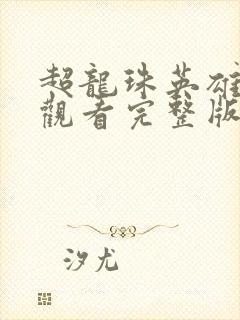 超龍珠英雄
觀看完整版
汐尤